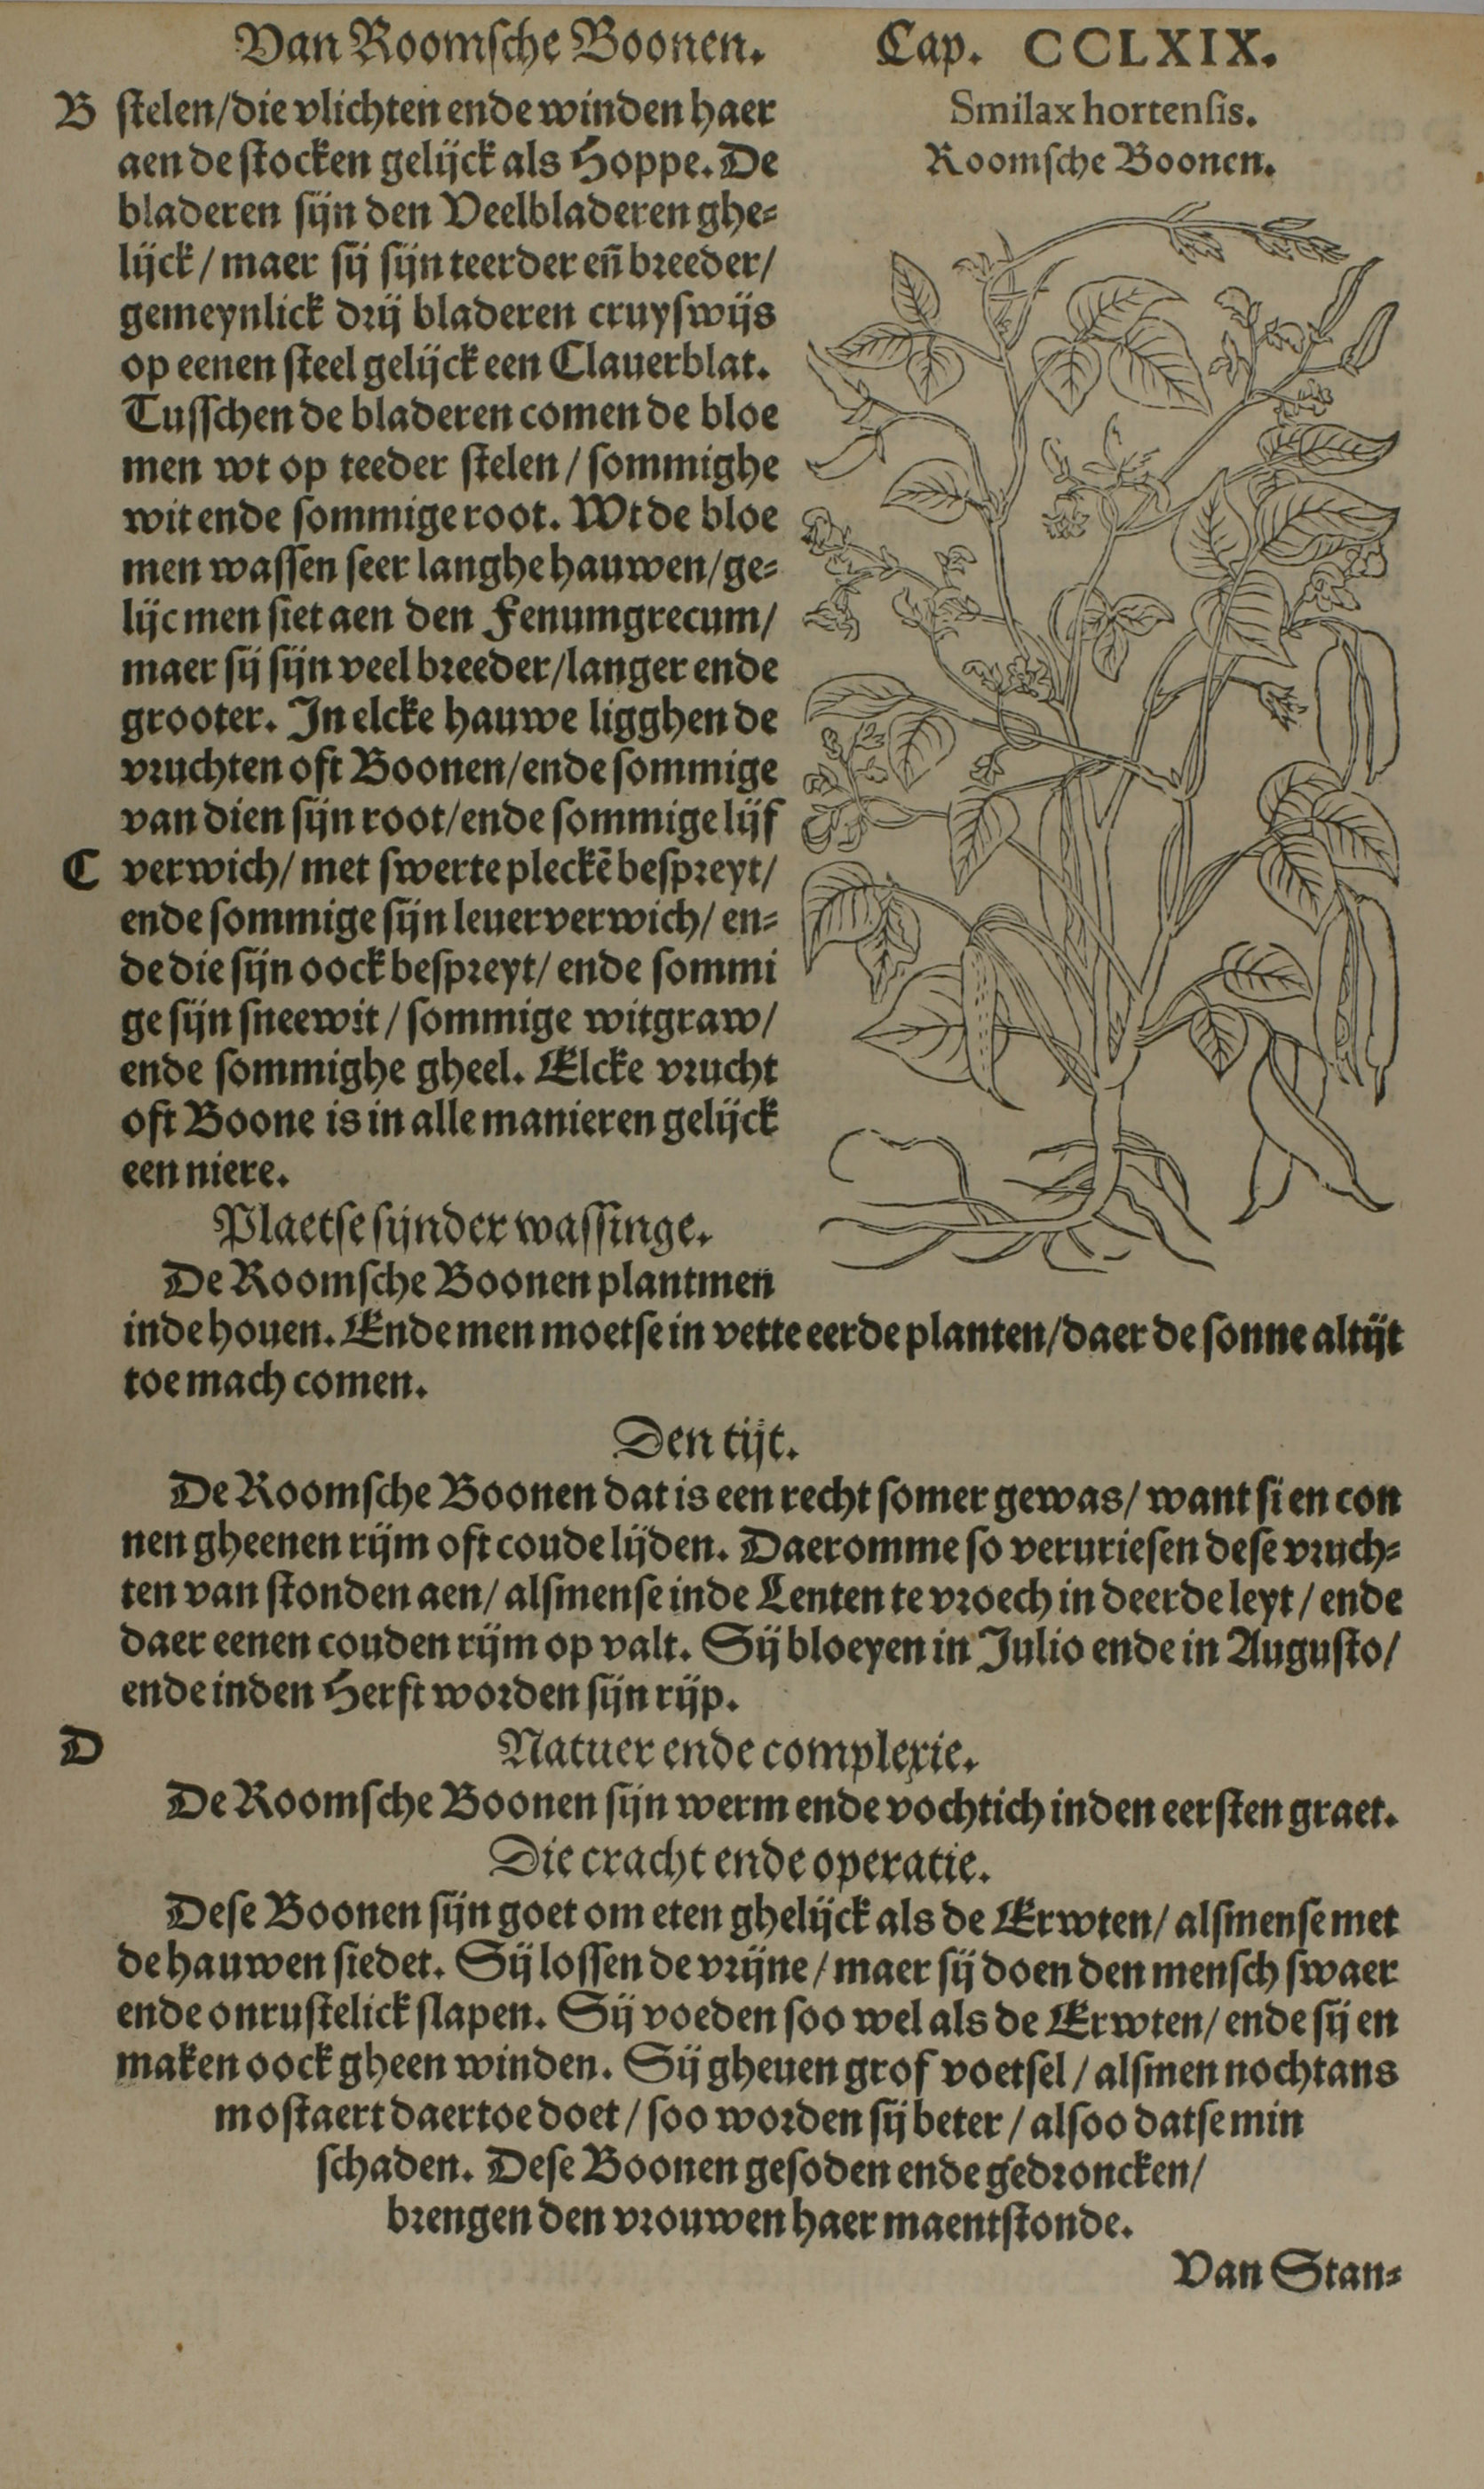 Van Roomsche Boonen. Cap. CCLXIX.
B stelen/die vlichten ende winden haer
aen de stocken gelijck als Hoppe. De
bladeren sijn den Veelbladeren ghe-
lijck/maer sij sijn teerder eñ breeder/
gemeynlick drij bladeren cruyswijs
op eenen steel gelijck een Clauerblat.
Tusschen de bladeren comen de bloe
men wt op teeder stelen/sommighe
wit ende sommige root. Wt de bloe
men wassen seer langhe hauwen/ge-
lijc men siet aen den Fenumgrecum/
maer sij sijn veel breeder/langer ende
grooter. In elcke hauwe ligghen de
vruchten oft Boonen/ende sommige
van dien sijn root/ende sommige lijf
C verwich/met swerte pleckē bespreyt/
ende sommige sijn leuerverwich/en-
de die sijn oock bespreyt/ende sommi
ge sijn sneewit/sommige witgraw/
ende sommighe gheel. Elcke vrucht
oft Boone is in alle manieren gelijck
een niere.
Smilax hortensis.
Roomsche Boonen.
Plaetse sijnder wassinge.
De Roomsche Boonen plantmen
inde houen. Ende men moetse in vette eerde planten/daer de sonne altijt
toe mach comen.
Den tijt.
De Roomsche Boonen dat is een recht somer gewas/want si en con
nen gheenen rijm oft coude lijden. Daeromme so veruriesen dese vruch-
ten van stonden aen/alsmense inde Lenten te vroech in deerde leyt/ende
daer eenen couden rijm op valt. Sij bloeyen in Julio ende in Augusto/
ende inden Herft worden sijn rijp.
D Natuer ende complexie.
De Roomsche Boonen sijn werm ende vochtich inden eersten graet.
Die cracht ende operatie.
Dese Boonen sijn goet om eten ghelijck als de Erwten/alsmense met
de hauwen siedet. Sij lossen de vrijne/maer sij doen den mensch swaer
ende onrustelick slapen. Sij voeden soo wel als de Erwten/ende sij en
maken oock gheen winden. Sij gheuen grof voetsel/alsmen nochtans
mostaert daertoe doet/soo worden sij beter/alsoo datse min
schaden. Dese Boonen gesoden ende gedroncken/
brengen den vrouwen haer maentstonde.
Van Stan-